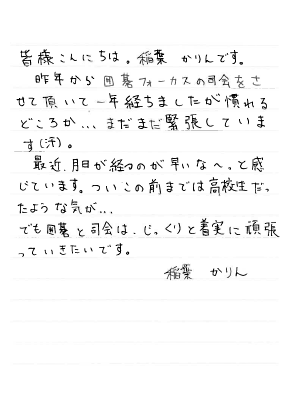 皆様こんにちは。稲葉 かりんです。
昨年から囲碁フォーカスの司会をさ
せて頂いて一年経ちましたが慣れる
どころか... まだまだ緊張していま
す(汗)。
最近、月日が経つのが早いな〜っと感
じています。ついこの前までは高校生だっ
たような気が...
でも囲碁と司会は、じっくりと着実に頑張
っていきたいです。
稲葉 かりん